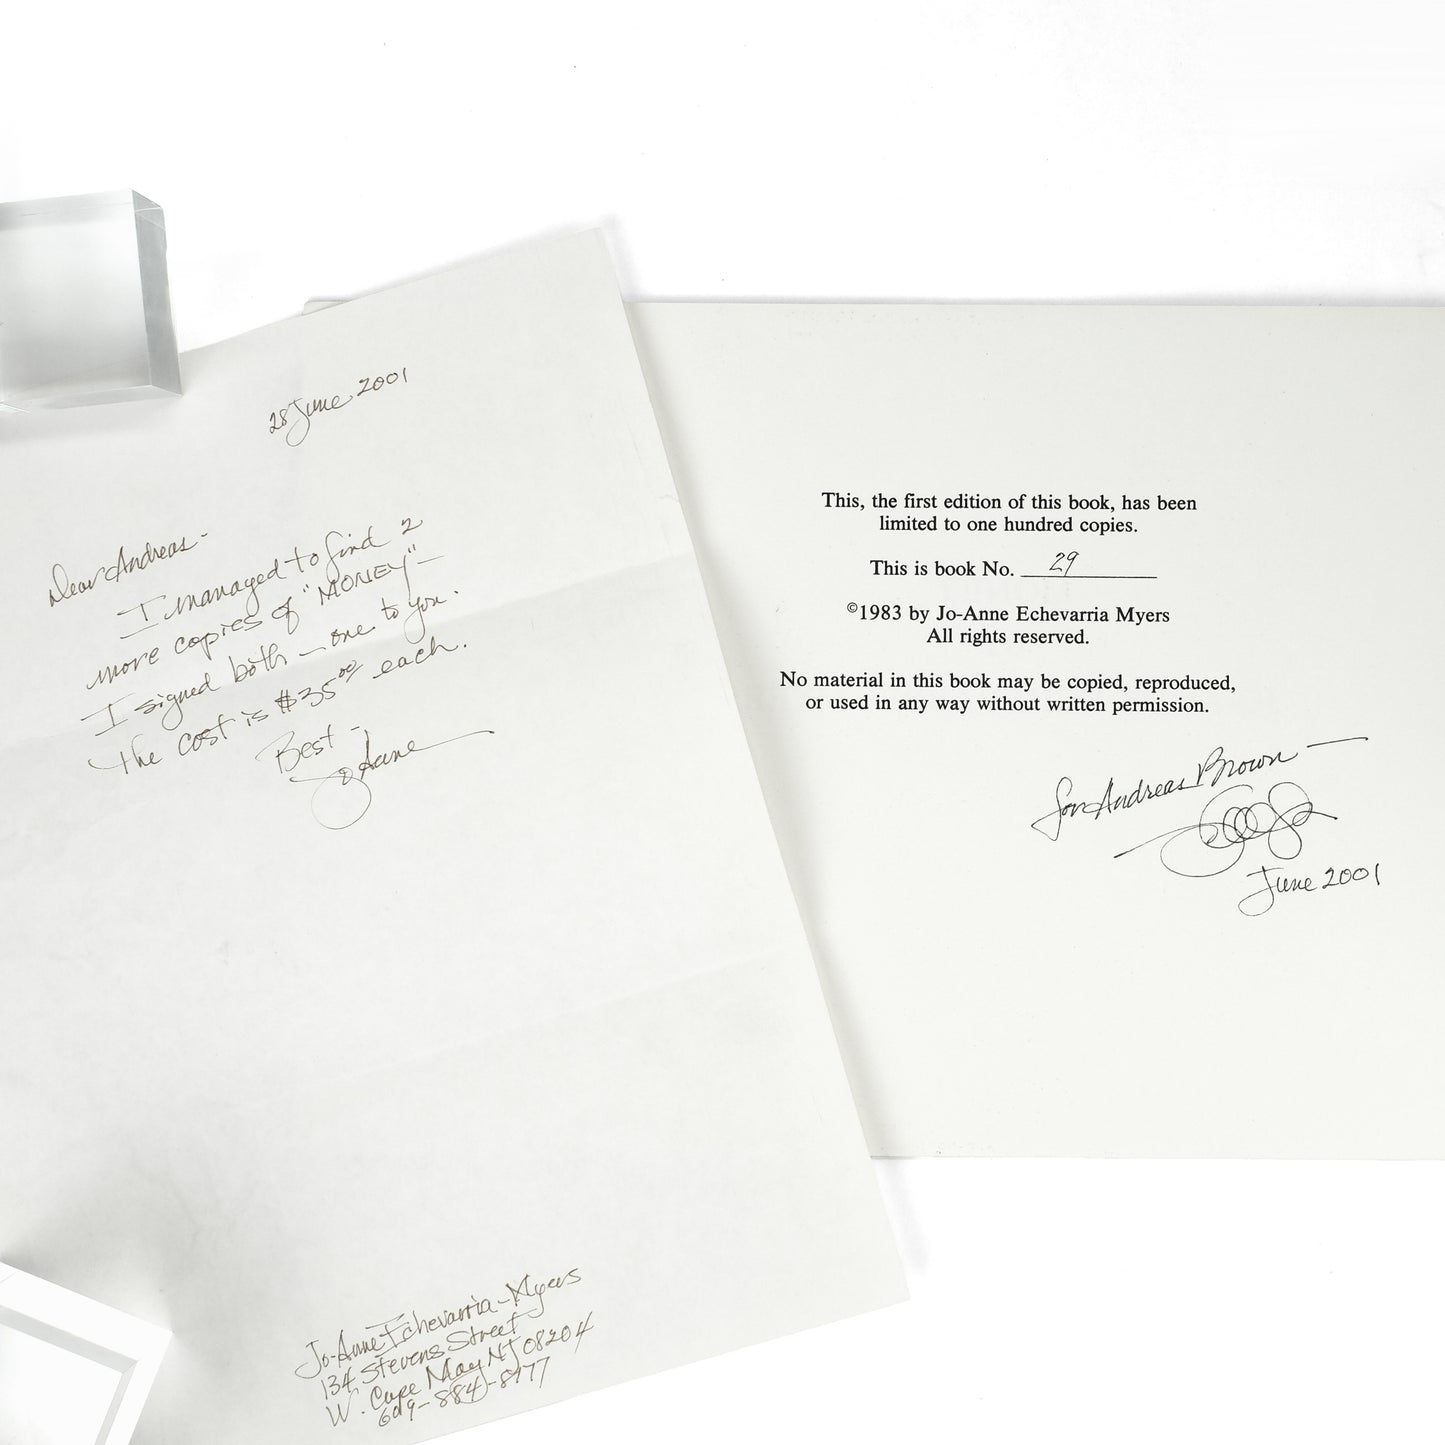 28 June 2001
Dear Andreas -
I managed to find 2
more copies of "MONEY" -
I signed both - one to you.
The cost is $35.00 each.
Best -
Jo Anne
Jo-Anne Echevarria-Myers
134 Stevens Street
W. Cape May NJ 08204
609-884-8977
This, the first edition of this book, has been
limited to one hundred copies.
This is book No. 29
©1983 by Jo-Anne Echevarria Myers
All rights reserved.
No material in this book may be copied, reproduced,
or used in any way without written permission.
for Andreas Brown -
June 2001